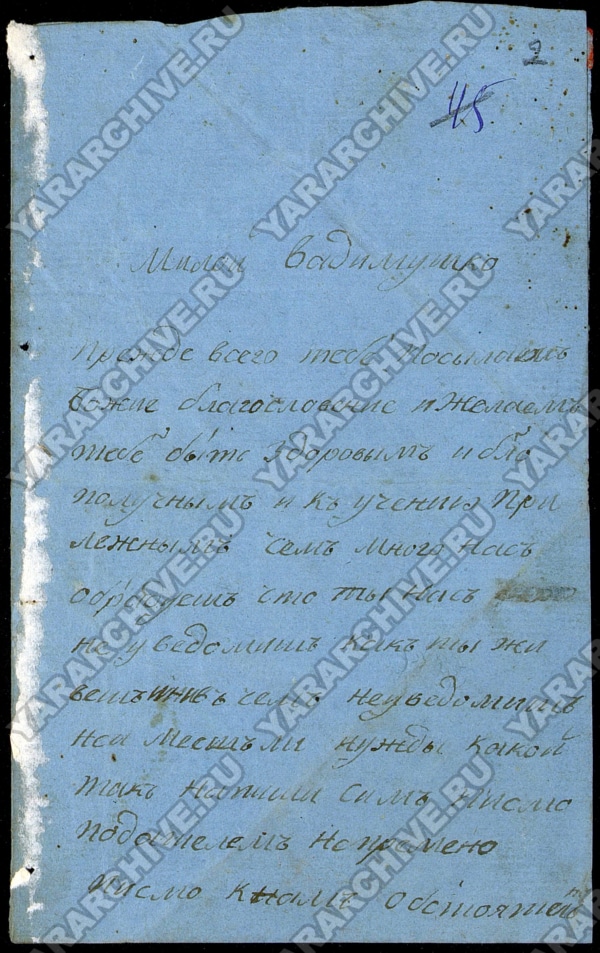 2
45
Милои Вадимушко
Прежде всего тебе посылаемъ
Божие благословение и желаемъ
тебе быть здоровымъ и бла
получнымъ и къ учению при
лежнымъ чемъ много насъ
обрадуешъ что ты насъ
не уведомишъ какъ ты жи
вешъ чемъ неуведомишъ
неи меешъ ли нужды какой
такъ напиши симъ писмо
подателемъ непремено
писмо кнамъ обстоятель